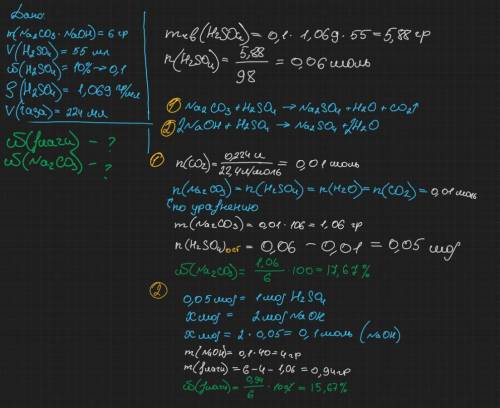 Дано:
m(Na₂CO₃·NaOH)=6 гр
V(H₂SO₄)=55 мл
ω(H₂SO₄)=10%→0,1
ρ(H₂SO₄)=1,069 гр/мл
V(газа)=224 мл
ω(влаги) - ?
ω(Na₂CO₃) - ?
m р. в(H₂SO₄)=0,1·1,069·55=5,88 гр
n(H₂SO₄)=5,88/98=0,06 моль
① Na₂CO₃+H₂SO₄→Na₂SO₄+H₂O+CO₂↑
② 2NaOH+H₂SO₄→Na₂SO₄+2H₂O
① n(CO₂)=0,224 л/22,4 л/моль=0,01 моль
n(Na₂CO₃)=n(H₂SO₄)=n(H₂O)=n(CO₂)=0,01 моль
по уравнению
m(Na₂CO₃)=0,01·106=1,06 гр
n(H₂SO₄)ост=0,06-0,01=0,05 mol
ω(Na₂CO₃)=1,06/6·100=17,67%
②
0,05 mol=1 mol H₂SO₄
x mol= 2 mol NaOH
x mol=2·0,05=0,1 моль (NaOH)
m(NaOH)=0,1·40=4 гр
m(влаги)=6-4-1,06=0,94 гр
ω(влаги)=0,94/6·100%=15,67%